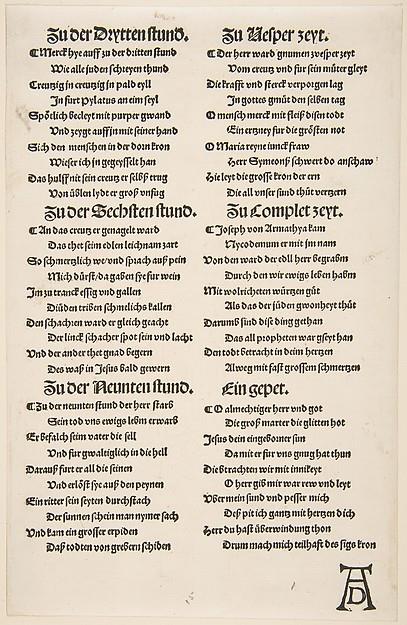 Zu der Drytten stund.
Merck hye auff zu der dritten stund
Wie alle juden schreyen thund
Creutzig in creutzig in pald eyll
In furt pylatus an eim seyl
Spötlich becleyt mit purper gwand
Vnd zeygt auff in mit seiner hand
Sich den menschen in der dorn kron
Wie ser ich in gegeysselt han
Das hulff nit sein creutz er selbs trug
Von üblen lydt er groß vnfug
Zu der Sechsten stund.
An das creutz er genagelt ward
Das thet seim edlen leichnam zart
So schmertzlich we/vnd sprach auß pein
Mich dürst/da gaben sye fur wein
Im zu tranck essig vnd gallen
Die juden triben schmelichs kallen
Den schachten ward er gleich geacht
Der linck schacher spot sein vnd lacht
Vnd der ander thet gnad begern
Des waß in Jesus bald gewern
Zu der Neunten stund.
Zu der neunten stund der herr starb
Sein tod vns ewigs lebm erwarb
Er befalch seim vater die sell
Vnd fur gwaltiglich in die hell
Darauß furt er all die seinen
Vnd erlöst sye auß den peynen
Ein ritter sein seyten durchstach
Der sunnen schein man nymer sach
Vnd kam ein grosser erpiden
Daß todten von grebern schiden
Zu Vesper zeyt.
Der herr ward gnumen zvesper zeyt
Vom creutz vnd fur sein müter gleyt
Die krafft vnd sterck verporgen lag
In gottes gmüt den selben tag
O mensch merck mit fleiß disen todt
Ein ertzney fur die grösten not
O Maria reyne iunckfraw
Herr Symeonß schwert do anschaw
Hie leyt die grosse kron der ern
Die all vnser sund thut vertzern
Zu Complet zeyt.
Joseph von Armathya kam
Nycodemum er mit im nam
Von den ward der edll herr begrabm
Durch den wir ewigs leben habm
Mit wolriechten würtzen güt
Als das der jüden gwonheyt thüt
Darumb sind dise ding gethan
Das all propheten war gseyt han
Den todt betracht in deim hertzen
Alweg mit fast grossem schmertzen
Ein gepet.
O almechtiger herr vnd got
Die groß marter die glitten hot
Jesus dein eingeboner sun
Da mit er fur vns gnug hat thun
Die btrachten wir mit innikeyt
O herr gib mir war rew vnd leyt
Vber mein sund vnd pesser mich
Deß pit ich gantz mit hertzen dich
Herr du hast überwindung thon
Drum mach mich teilhaft des sigs kron
AD